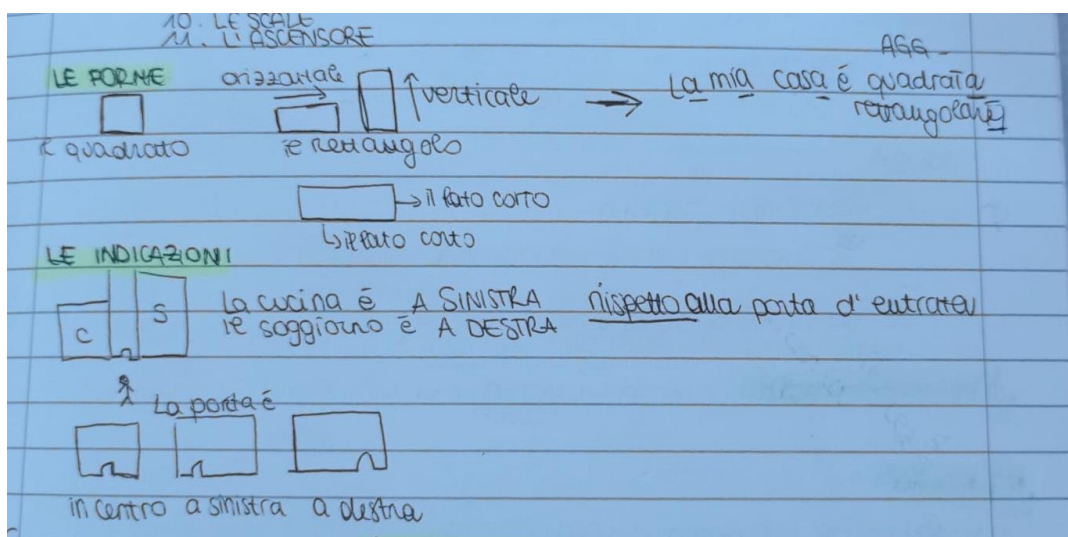 10. LE SCALE
11. L'ASCENSORE
AGG.
LE FORME
orizzontale
verticale
La mia casa é quadrata
rettangolare
il quadrato
il rettangolo
il lato corto
il lato corto
LE INDICAZIONI
C
S
La cucina é A SINISTRA rispetto alla porta d'entrata
il soggiorno é A DESTRA
La porta é
in centro a sinistra a destra